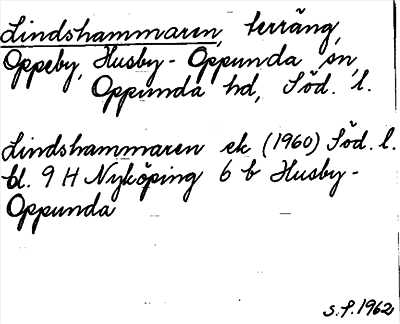 Lindshammaren, terräng,
Oppeby, Husby-Oppunda sn,
Oppunda hd, Söd. l.
Lindshammaren ek (1960) Söd. l.
bl. 9 H Nyköping 6 b Husby-
Oppunda
s.f. 1962